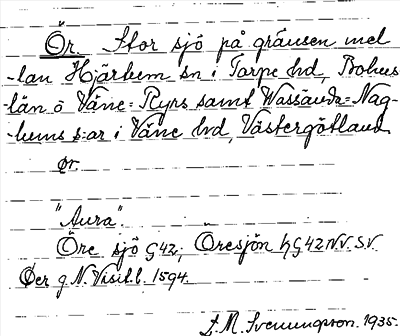 Ör. Stor sjö på gränsen mel
-lan Hjärtum sn i Torpe hd, Bohus
-län o Väne-Ryrs samt Wassända-Nag-
-lums s:ar i Väne hd, Västergötland
ør.
"Aura".
Öre sjö G42, Öresjön h G42 N.V. S.V.
Öer g N. Visit.b. 1594.
L. M. Svenungsson. 1935.